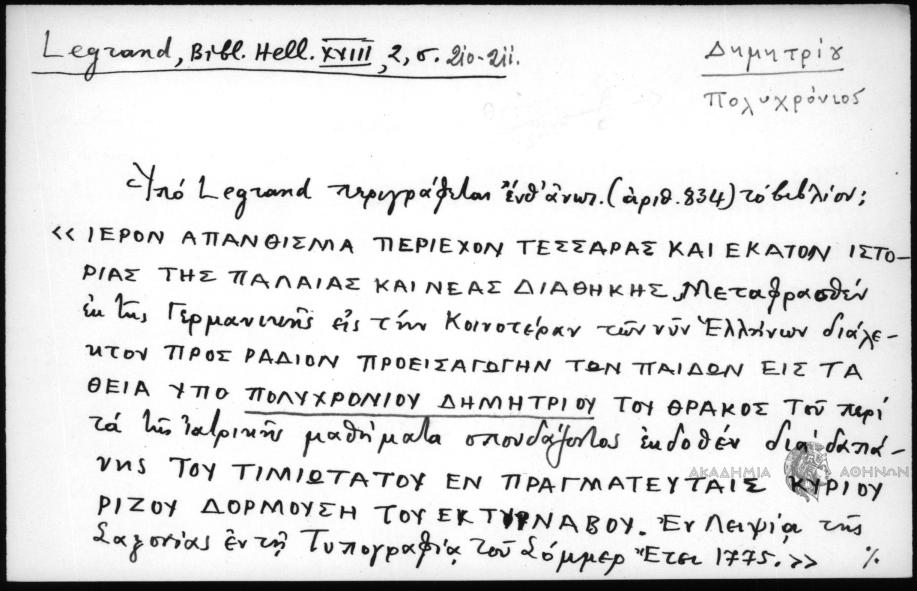 Legrand, Bibl. Hell. XVIII, 2, σ. 210-211.
Δημητρίου
Πολυχρόνιος
Ὑπό Legrand περιγράφεται ἔνθ' ἀνωτ. (ἀριθ. 834) τό βιβλίον;
«ΙΕΡΟΝ ΑΠΑΝΘΙΣΜΑ ΠΕΡΙΕΧΟΝ ΤΕΣΣΑΡΑΣ ΚΑΙ ΕΚΑΤΟΝ ΙΣΤΟ-
ΡΙΑΣ ΤΗΣ ΠΑΛΑΙΑΣ ΚΑΙ ΝΕΑΣ ΔΙΑΘΗΚΗΣ, Μεταφρασθέν
ἐκ τῆς Γερμανικῆς εἰς τήν Κοινοτέραν τῶν νῦν Ἑλλήνων διάλε-
κτον ΠΡΟΣ ΡΑΔΙΟΝ ΠΡΟΕΙΣΑΓΩΓΗΝ ΤΩΝ ΠΑΙΔΩΝ ΕΙΣ ΤΑ
ΘΕΙΑ ΥΠΟ ΠΟΛΥΧΡΟΝΙΟΥ ΔΗΜΗΤΡΙΟΥ ΤΟΥ ΘΡΑΚΟΣ Τοῦ περί
τά τῆς ἰατρικῆς μαθήματα σπουδάζοντος ἐκδοθέν διά δαπά-
νης ΤΟΥ ΤΙΜΙΩΤΑΤΟΥ ΕΝ ΠΡΑΓΜΑΤΕΥΤΑΙΣ ΚΥΡΙΟΥ
ΑΚΑΔΗΜΙΑ ΑΘΗΝΩΝ
ΡΙΖΟΥ ΔΟΡΜΟΥΣΗ ΤΟΥ ΕΚ ΤΥΡΝΑΒΟΥ. Ἐν Λειψίᾳ τῆς
Σαξονίας ἐν τῇ Τυπογραφίᾳ τοῦ Σόμμερ Ἔτει 1775.» ./.